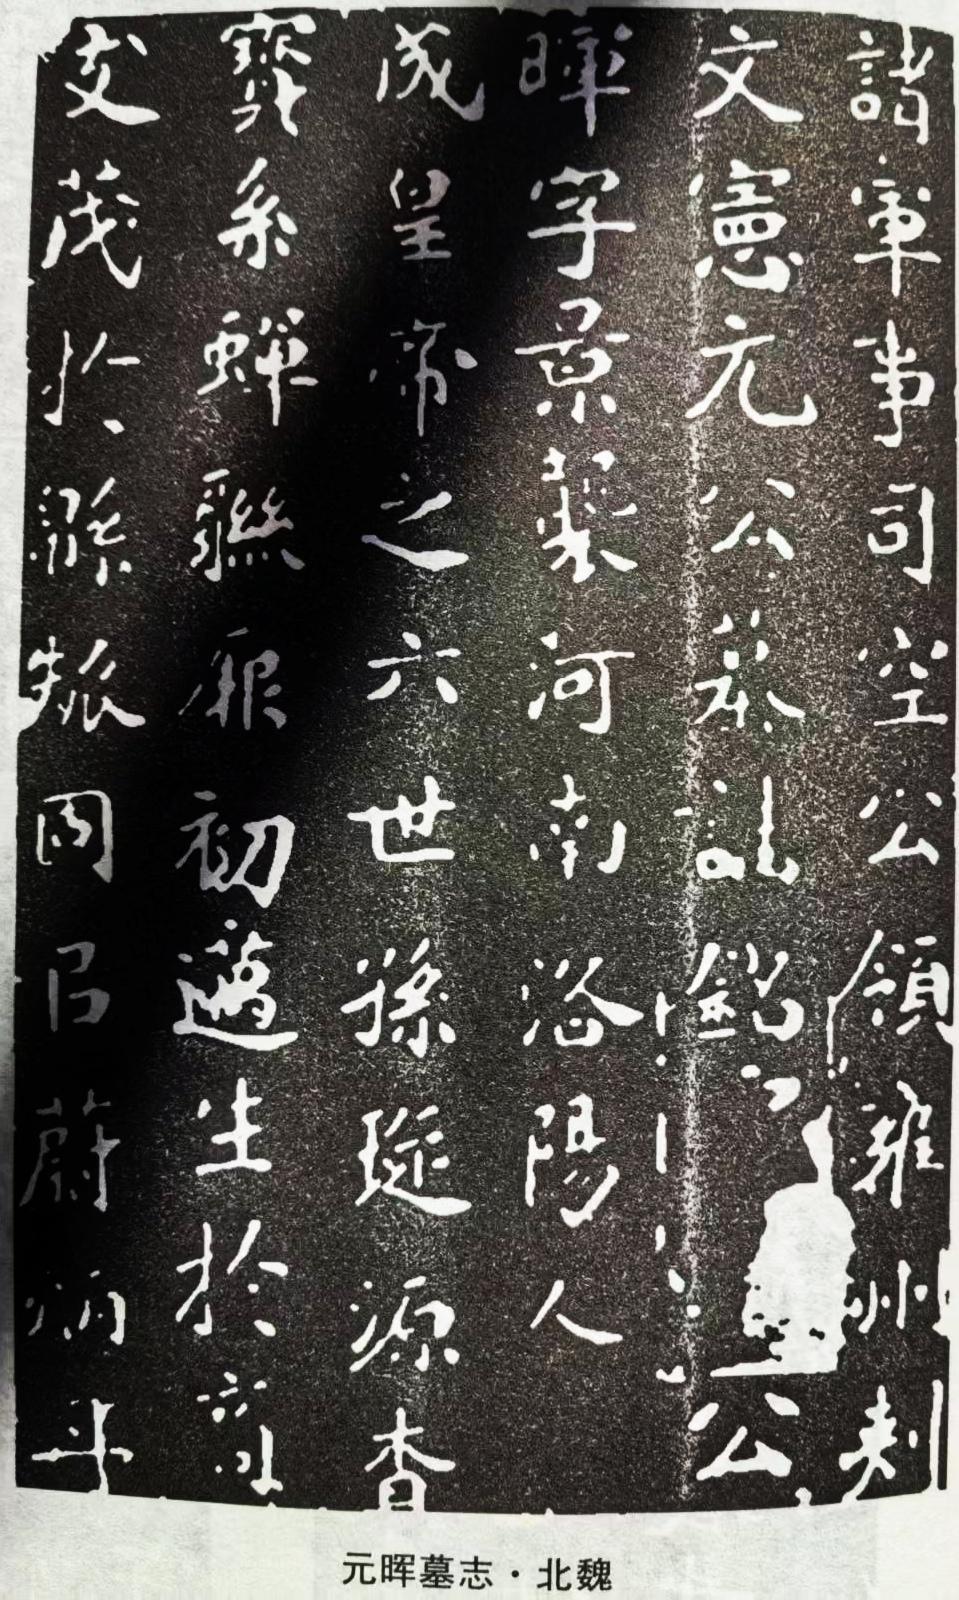 諸軍事司空公領雍州刺
文憲元公墓誌銘公
暉字景襲河南洛陽人
成皇帝之六世孫琁源杳
寶系蟬聯厥初邁生於
文茂於緜瓞固㠯蔚炳斗
元晖墓志·北魏